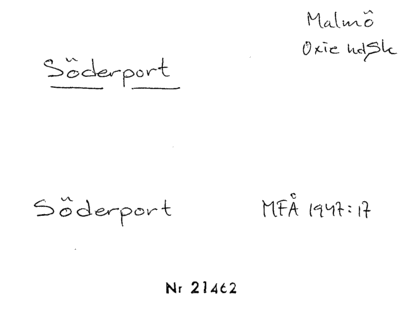 Malmö
Oxie hd Sk
Söderport
Söderport MFÅ 1947:17
Nr 21462